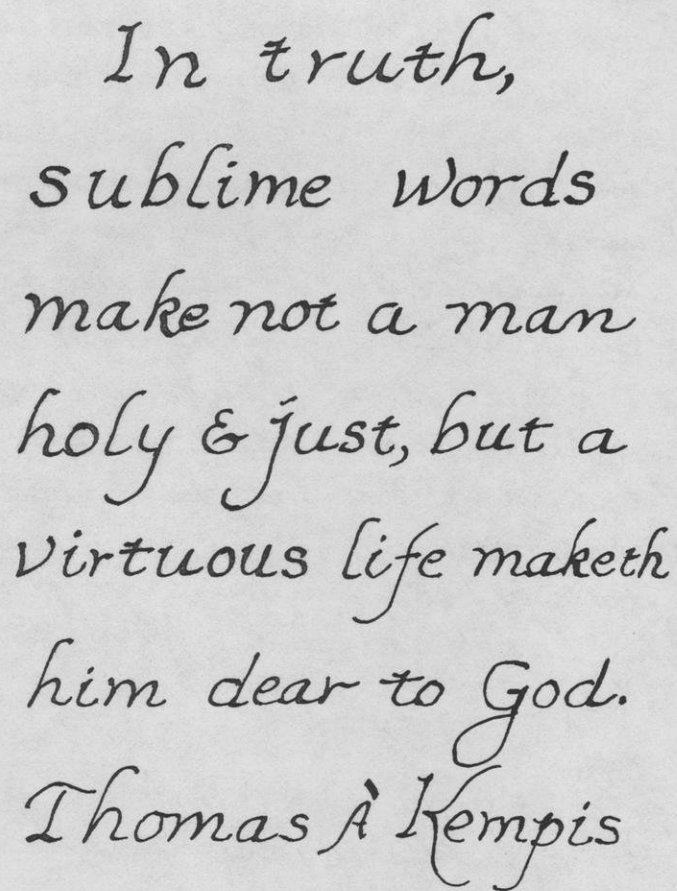 In truth,
sublime words
make not a man
holy & just, but a
virtuous life maketh
him dear to God.
Thomas À Kempis